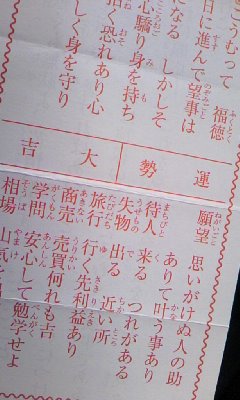 こうむって 福徳
日に進んで望事は
になる しかしそ
心驕り身を持ち
招く恐れあり心
しく身を守り
運勢
大吉
願望 思いがけぬ人の助
ありて叶う事あり
待人 来る つれがある
失物 出る 近い所
旅行 行く先利益あり
商売 売買何れも吉
学問 安心して勉学せよ
相場